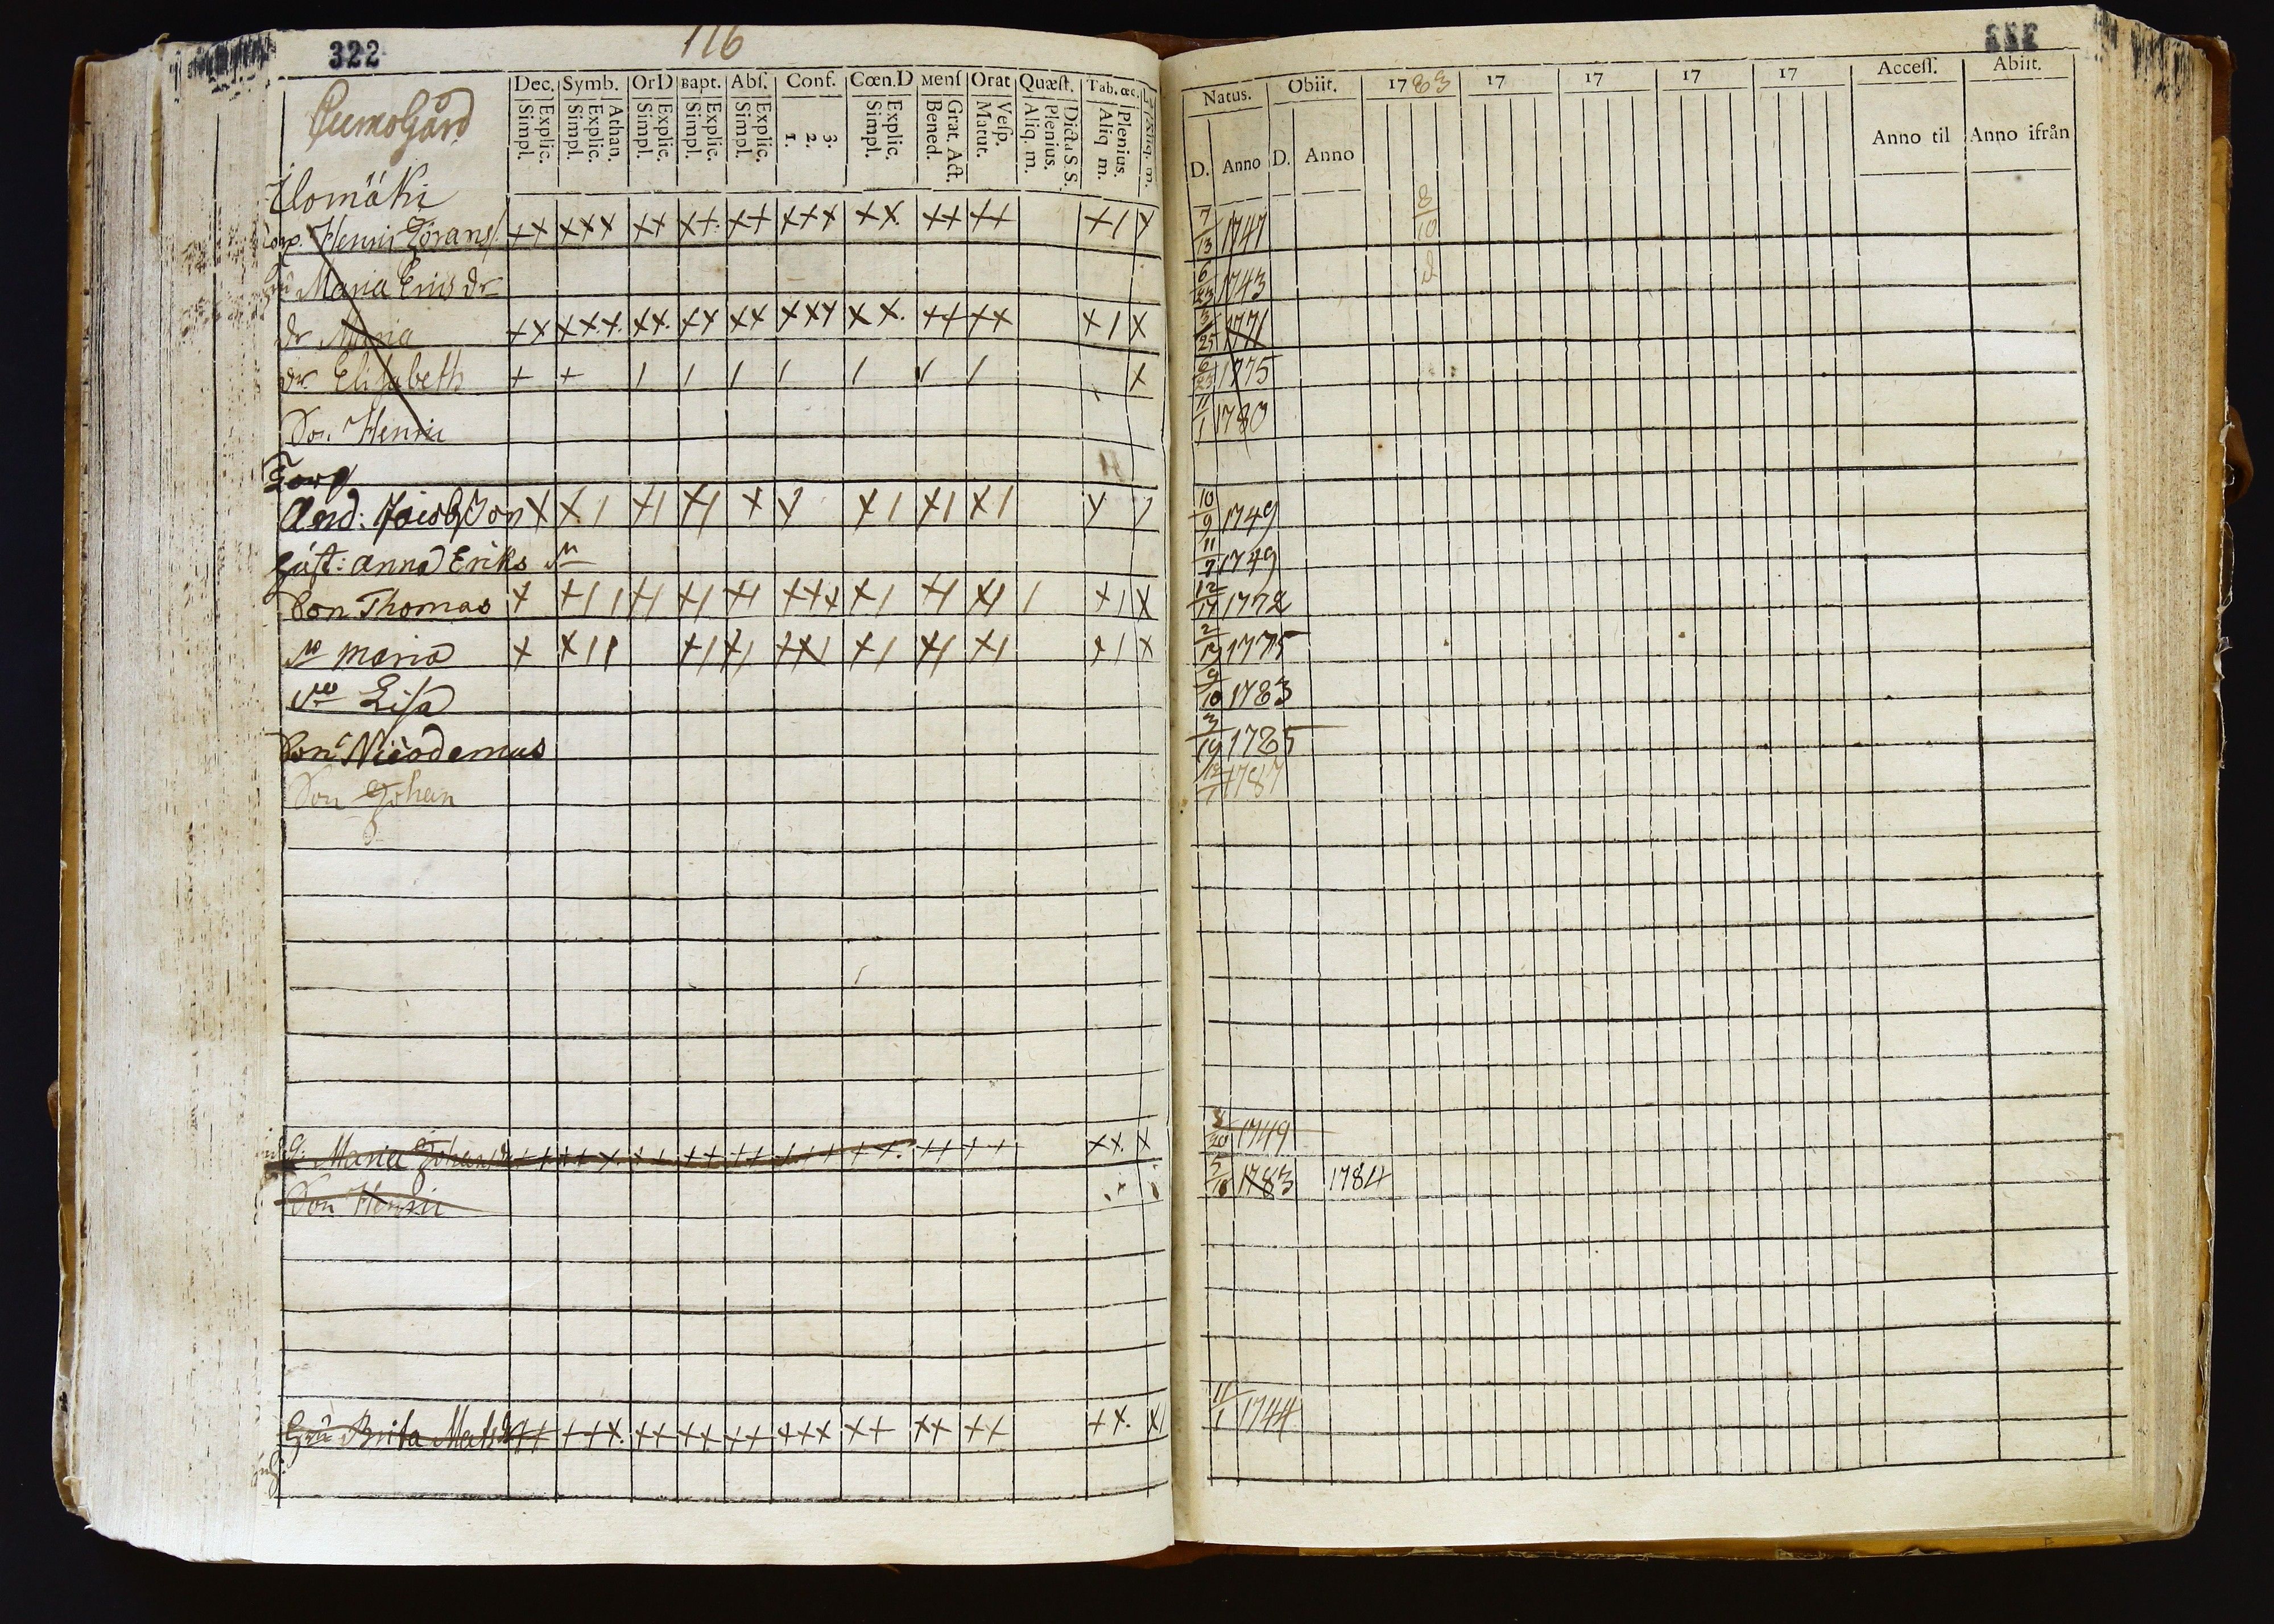 322
116
Dec. Symb. OrD Bapt. Abſ. Conf. Cœn.D Menſ Orat Quæſt. Tab. œc.
Explic. Simpl. Athan. Explic. Simpl. Explic. Simpl. Explic. Simpl. Explic. Simpl. 3. 2. 1. Explic. Simpl. Grat. Act. Bened. Veſp. Matut. Dicta S S. Plenius. Aliq. m. Plenius. Aliq m.
Natus. Obiit. 1783 17 17 17 17 Acceſſ. Abiit.
D. Anno D. Anno Anno til Anno ifrån
Ilomäki
Henric Görans ++ +++ ++ ++ ++ +++ ++ ++ ++ +/ + 7/13 1747 8/10
Maria Erics dr 6/23 1743
dr Maria ++ +++ ++ ++ ++ +++ ++ ++ ++ +/ + 3/25 1771
dr Elisabeth + + / / / / / / / + 6/23 1775
Son Henric 11/1 1780
Torp
And: Jacobsson + +/ +/ +/ + + +/ +/ +/ + / 10/9 1749
Hust: Anna Eriks dr 11/7 1749
Son Thomas + +// +/ +/ +/ +++ +/ +/ +/ / +/ + 12/17 1772
dr Maria + +// +/ +/ ++/ +/ +/ +/ +/ + 2/19 1775
dr Lisa 9/10 1783
Son Nicodemus 3/19 1785
Son Johan 12/1 1787
Maria Johans dr ++ +++ ++ ++ ++ +++ ++ ++ ++ ++ + 8/20 1749
Son Henric 1783 1784
Brita Mats dr ++ +++ ++ ++ ++ +++ ++ ++ ++ ++ + 11/1 1744